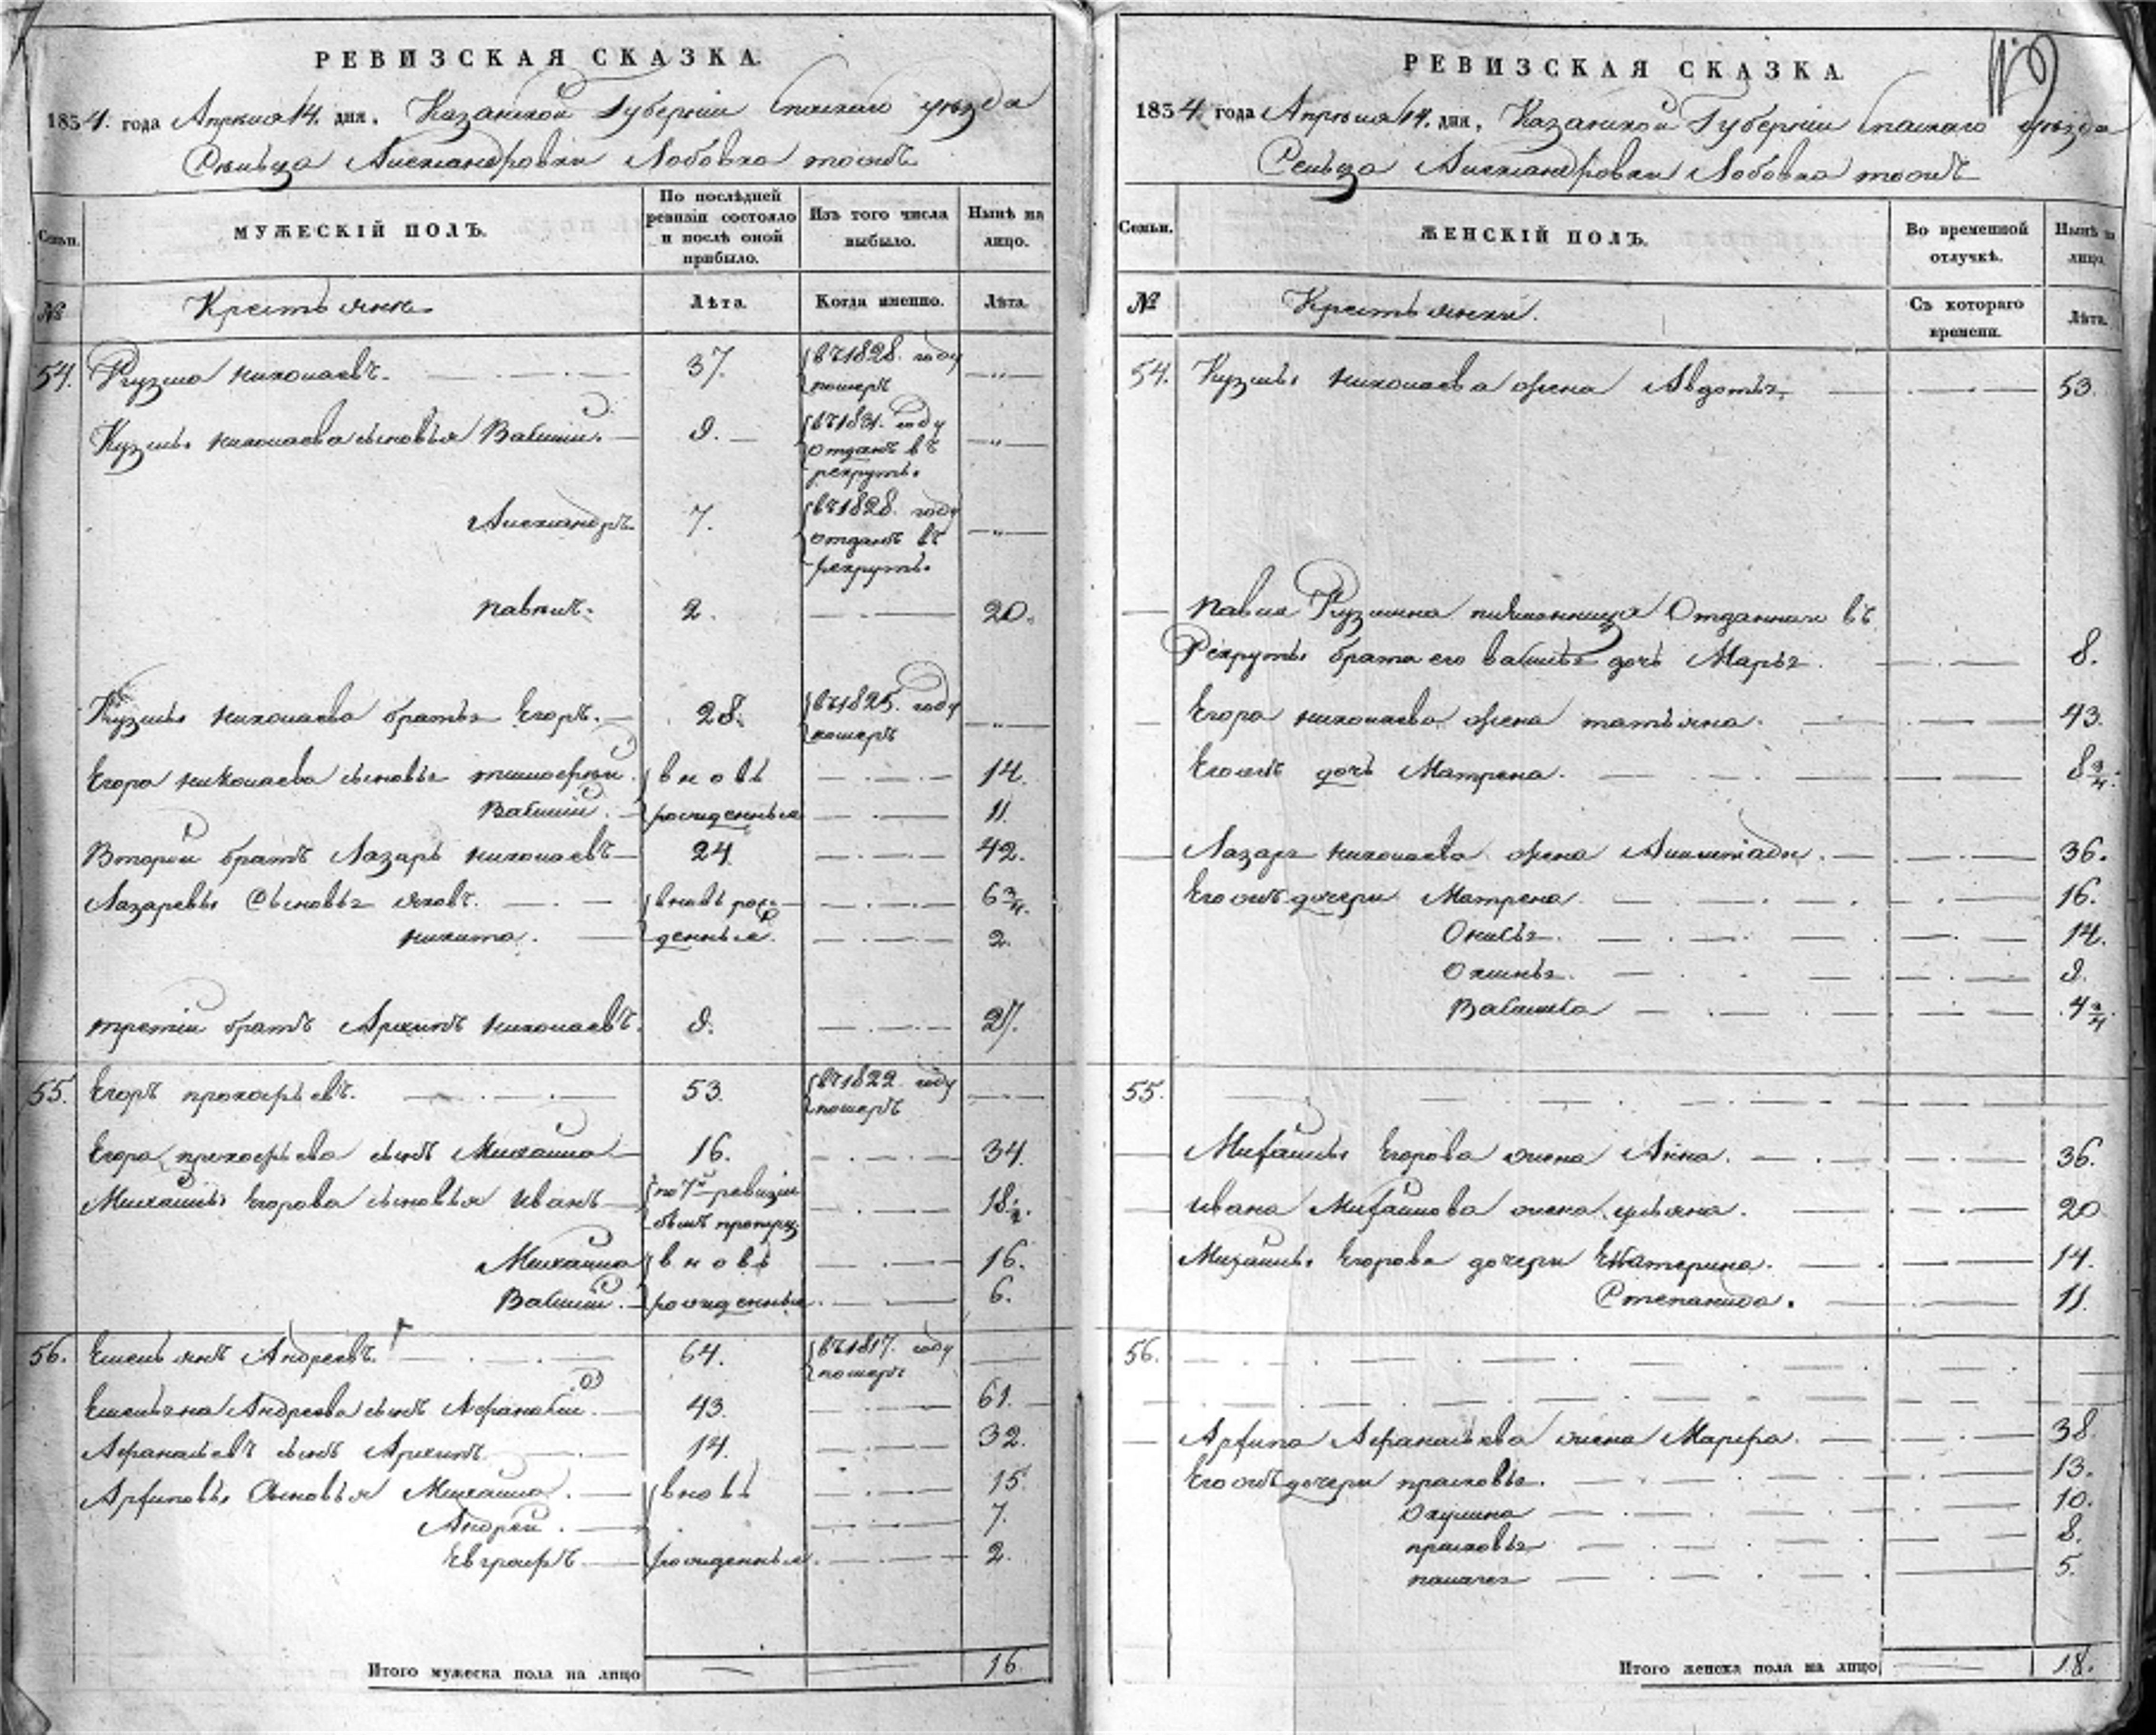 РЕВИЗСКАЯ СКАЗКА.
1834. года Апреля 14. дня. Казанской Губернiи Спаскаго уезда
Сельца Александровки Лобовка тожъ
Семьи.
МУЖЕСКIЙ ПОЛЪ.
По послѣдней ревизiи состояло и послѣ оной прибыло.
Изъ того числа выбыло.
Нынѣ на лицо.
№
Крестьяне
Лѣта.
Когда именно.
Лѣта.
54. Кузма николаевъ. 37. въ 1828. году
померъ
Кузмы николаева сыновья Василiй. 9. въ 1831. году
отданъ въ
рекруты.
Александръ 7. въ 1828. году
отданъ въ
рекруты.
павилъ. 2. 20.
Кузмы николаева братья Егоръ. 28. въ 1825. году
померъ
Егора николаева сыновья тимофей. вновь 14.
Василiй. рожденныя 11.
Второй братъ Лазарь николаевъ 24. 42.
Лазаревы Сыновья яковъ. вновь рож- 6 3/4.
никита. денныя. 2.
третiй братъ Архипъ николаевъ. 9. 27.
55. Егоръ прокофьевъ. 53. въ 1822 году
померъ
Егора прокофьева сынъ Михаила 16. 34.
Михаилы Егорова сыновья Иванъ по 7й ревизiи 18 1/2.
былъ пропущ.
Михаила вновь 16.
Василiй. рожденныя. 6.
56. Емельянъ Андреевъ. 64. въ 1817. году
померъ
Емельяна Андреева сынъ Афанасiй. 43. 61.
Афанасьевъ сынъ Архипъ 14. 32.
Архиповы Сыновья Михаила. вновь 15.
Андрей. 7.
Евграфъ. рожденныя. 2.
Итого мужеска пола на лицо 16.
РЕВИЗСКАЯ СКАЗКА.
1834. года Апреля 14. дня. Казанской Губернiи Спаскаго уезда
Сельца Александровки Лобовка тожъ
Семьи.
ЖЕНСКIЙ ПОЛЪ.
Во временной отлучкѣ.
Нынѣ на лицо.
№
Крестьянки.
Съ котораго времени.
Лѣта.
54. Кузмы николаева жена Авдотья 53.
павла Кузмина племянница Отданнаго въ
Рекруты брата его василья дочь Марья. 8.
Егора николаева жена татьяна. 43.
Егожъ дочь Матрена. 8 3/4.
Лазаря николаева жена 36.
Егожъ дочери Матрена 16.
Онисья. 14.
Охимья. 9.
Василиса 4 3/4.
55.
Михаилы Егорова жена Анна. 36.
Ивана Михаилова жена ульяна. 20
Михаилы Егорова дочери Екатерина. 14.
Степанида. 11.
56.
Архипа Афанасьева жена Марфа. 38.
Егожъ дочери прасковья. 13.
Окулина 10.
прасковья 8.
палагея 5.
Итого женска пола на лицо 18.